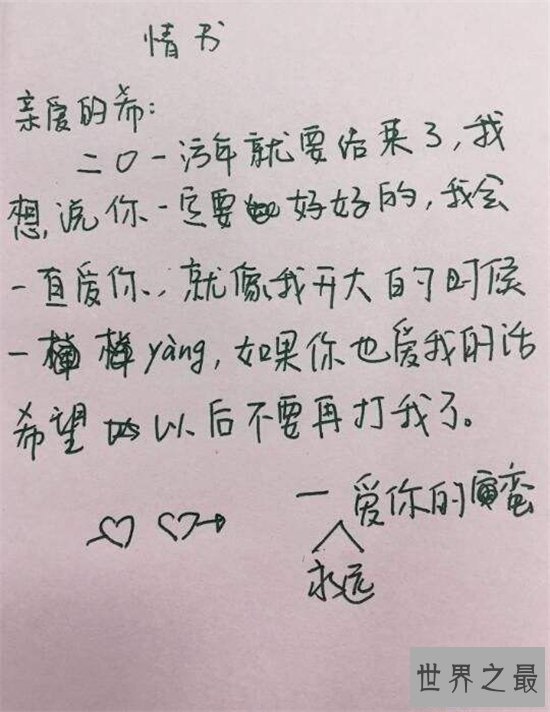 情书
亲爱的希:
二〇一污年就要结束了,我
想说你一定要好好的,我会
一直爱你、就像我开大的时候
一 yàng,如果你也爱我的话
希望以后不要再打我了。
一爱你的蛮
永远
世界之最